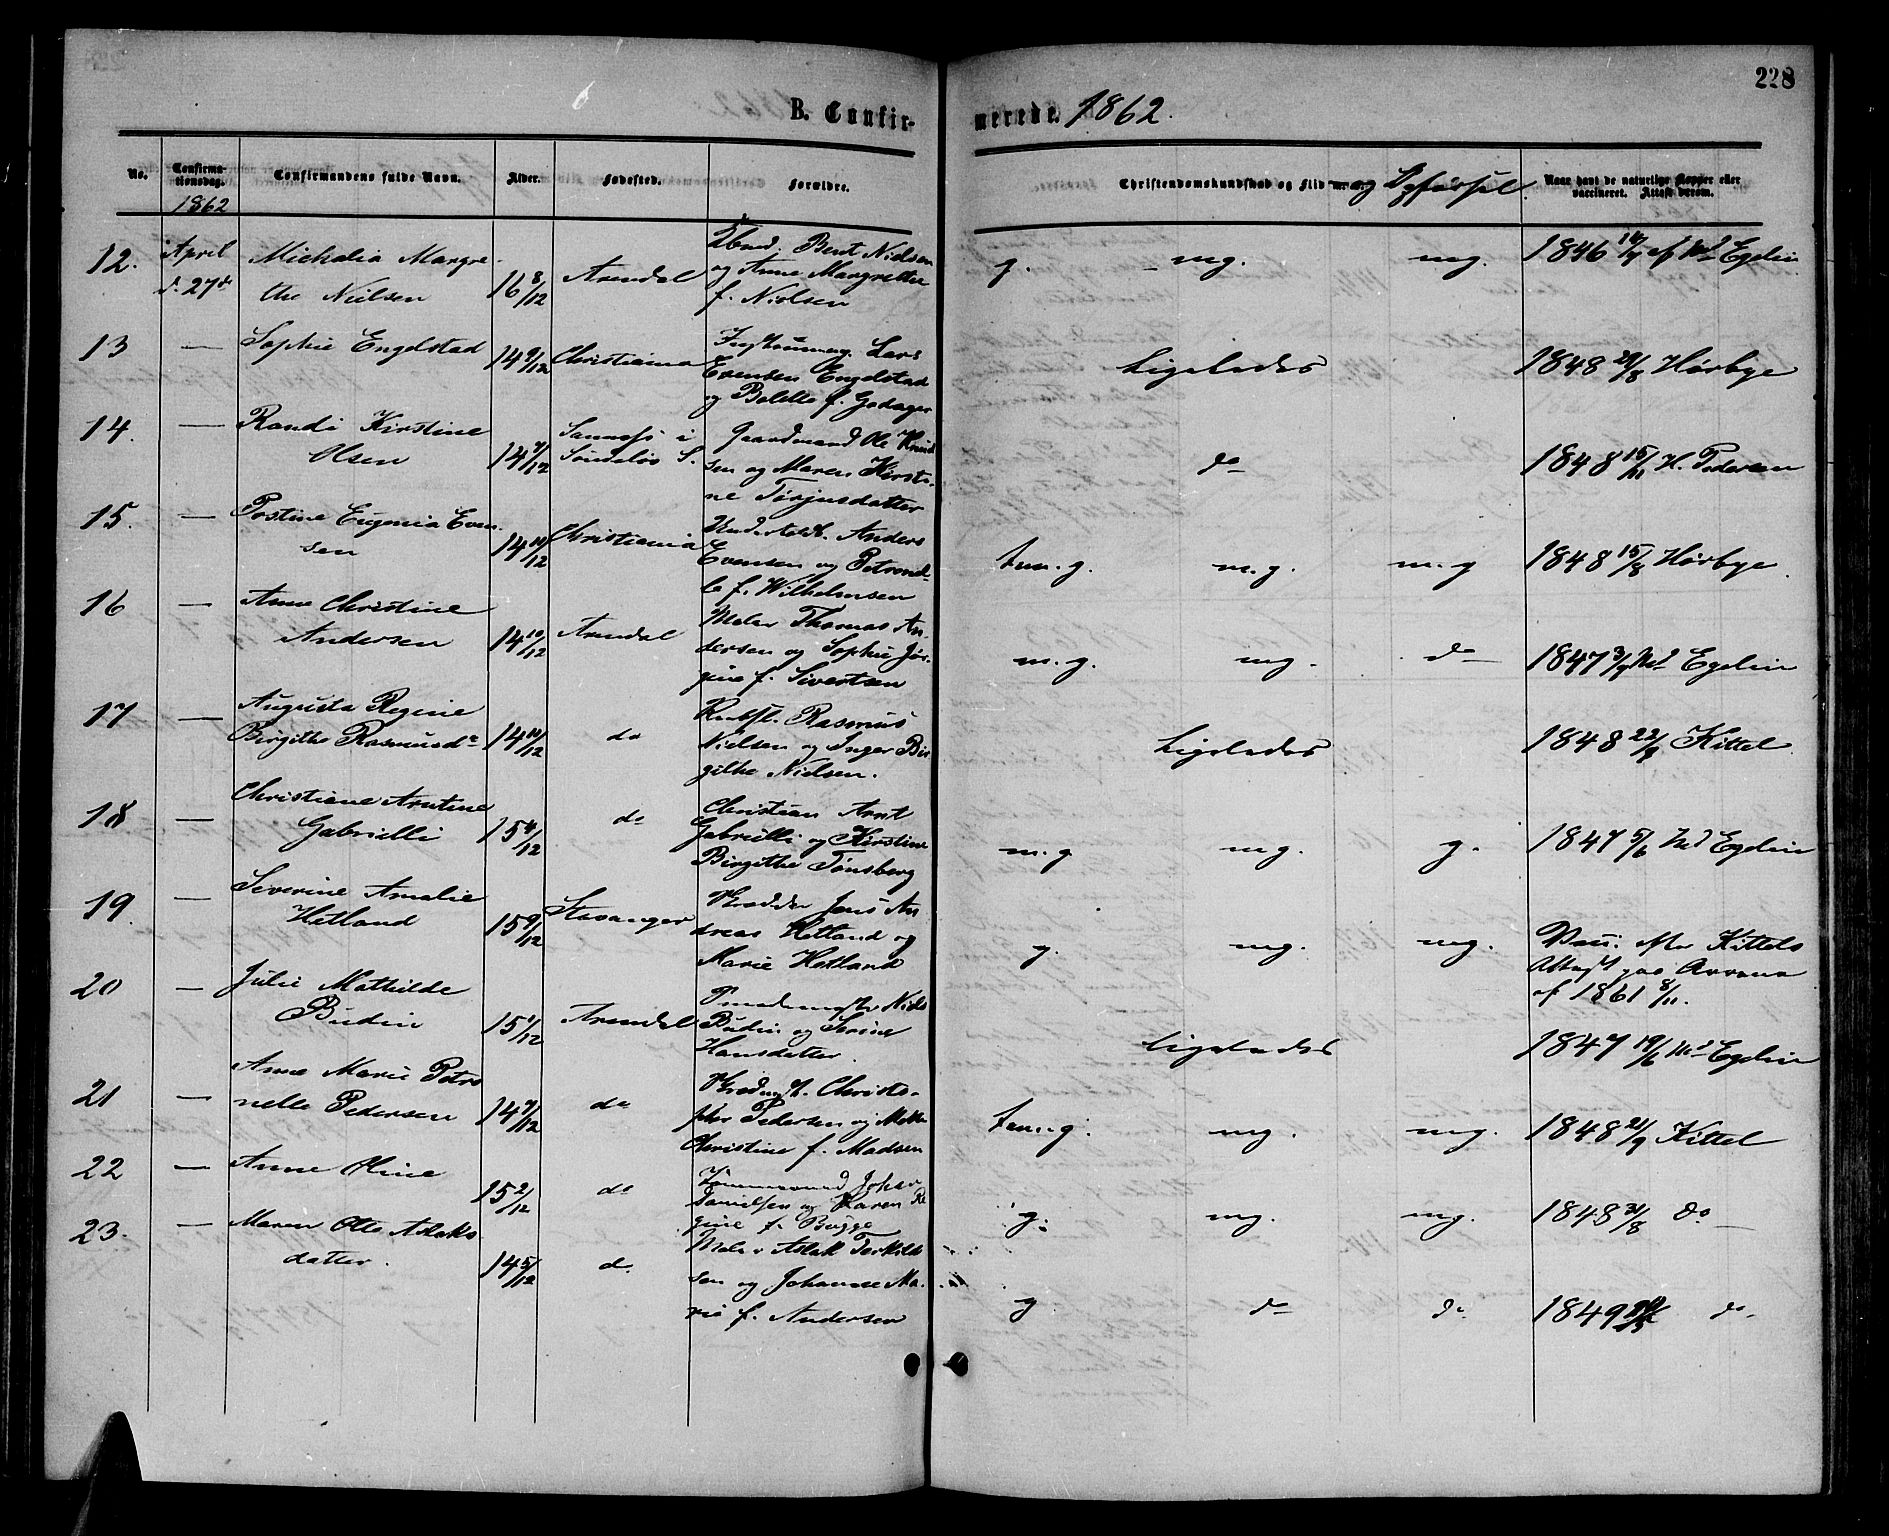 228
B. Confirmerede. 1862.
No. Confirmationsdag. Confirmandens fulde Navn. Alder. Fødested. Forældre. Christendomskundskab og Flid og Opførsel. Naar havt de naturlige Kopper eller vaccineret. Attest derom.
1862
12. April d. 27de Michalia Margre-
the Nielsen 16 8/12 Arendal
Bent Nielsen
og Anne Margrethe
f. Nielsen
g. mg. mg. 1846 af Md Egelin
13 — Sophie Engelstad 14 9/12 Christiania
Lars
Evensen Engelstad
og Bolette f. Godager
Ligeledes 1848 29/8 Hørbye
14. — Randi Kirstine
Olsen 14 7/12 Søndeløv S.
Gaardmand Ole Knud-
sen og Maren Kirsti-
ne Tørjusdatter
do 1848 15/11 H. Pedersen
15. — Postine Eugenia Even-
sen 14 11/12 Christiania
Undertoldb. Anders
Evensen og Petronel-
le f. Wilhelmsen
tem. g. m.g. m.g 1848 15/8 Hørbye
16 — Anne Christine
Andersen 14 10/12 Arendal
Maler Thomas An-
dersen og Sophie Jør-
gine f. Sivertsen
m.g. mg. do 1847 Md Egelin
17 — Augusta Regine
Birgithe Rasmusdr 14 10/12 do
Rasmus
Nielsen og Inger Bir-
githe Nielsen.
Ligeledes 1848 22/9 Kittel
18 — Christiane Arntine
Gabrielli 15 do
Christian Arnt
Gabrielli og Kirstine
Birgithe Tønsberg
m.g mg. g. 1847 5/6 Md Egelin
19. — Severine Amalie
Hetland 15 9/12 Stavanger
Skrædder Jens An-
dreas Hetland og
Marie Hetland
g. mg. mg. Vac. efter Kittels
Attest
af 1861 8/11.
20 — Julie Mathilde
Budin 15 1/12 Arendal
Niels
Budin og Serine
Hansdatter.
Ligeledes 1847 19/6 Md Egelin
21 — Anne Marie Petro-
nelle Pedersen 14 7/12 do
Christo-
pher Pedersen og Mette
Christine f. Madsen
tem. g. mg. mg. 1848 21/9 Kittel
22 — Anne Oline 15 2/12 do
Tømmermand Johan
Danielsen og Karen Re-
gine f. Bugge
g. mg. mg. 1848 31/8 do
23. — Maren Otto Aslaks-
datter. 14 5/12 do
Maler Aslak Terkild-
sen og Johanne Ma-
rie f. Andersen
g do do 1849 do.